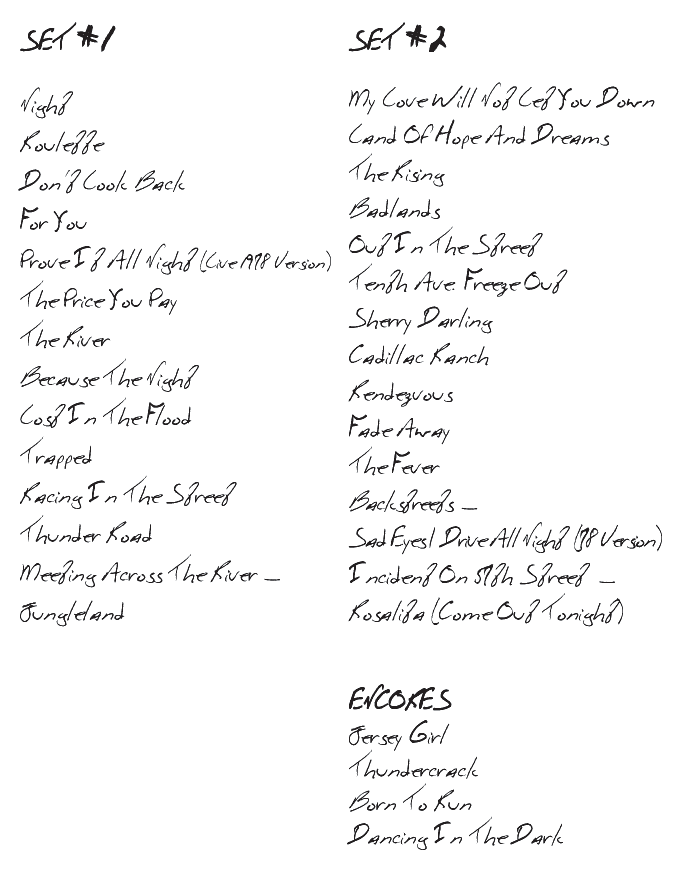 SET #1
Night
Roulette
Don't Look Back
For You
Prove It All Night (Live 1978 Version)
The Price You Pay
The River
Because The Night
Lost In The Flood
Trapped
Racing In The Street
Thunder Road
Meeting Across The River –
Jungleland
SET #2
My Love Will Not Let You Down
Land Of Hope And Dreams
The Rising
Badlands
Out In The Street
Tenth Ave. Freeze Out
Sherry Darling
Cadillac Ranch
Rendezvous
Fade Away
The Fever
Backstreets –
Sad Eyes/ Drive All Night (78 Version)
Incident On 57th Street –
Rosalita (Come Out Tonight)
ENCORES
Jersey Girl
Thundercrack
Born To Run
Dancing In The Dark